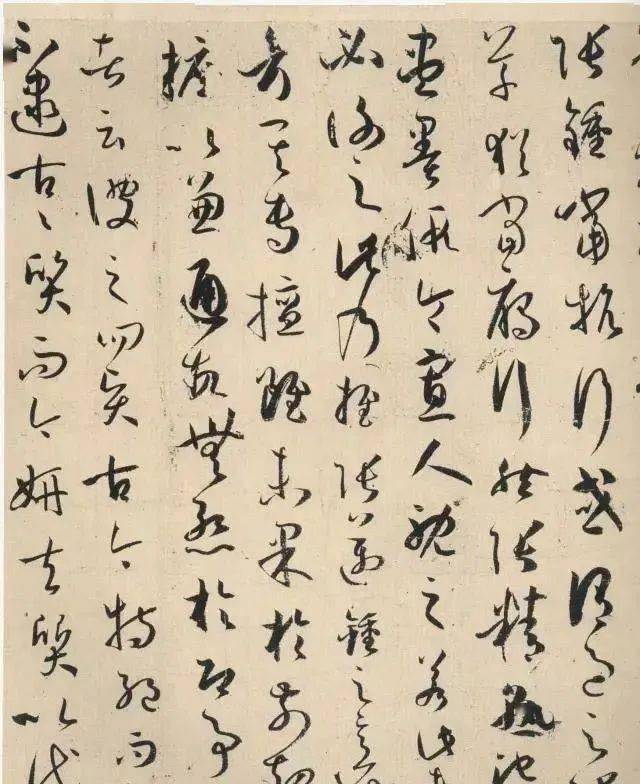 張鍾當抗行或謂過之
草猶當雁行然張精熟池
盡墨假令寡人耽之若此
必謝之此乃推張邁鍾之意
考其專擅雖未果於前規
摭以兼通故無慚於即事
者云彼之四賢古今特絕而
不逮古古質而今妍夫質以代